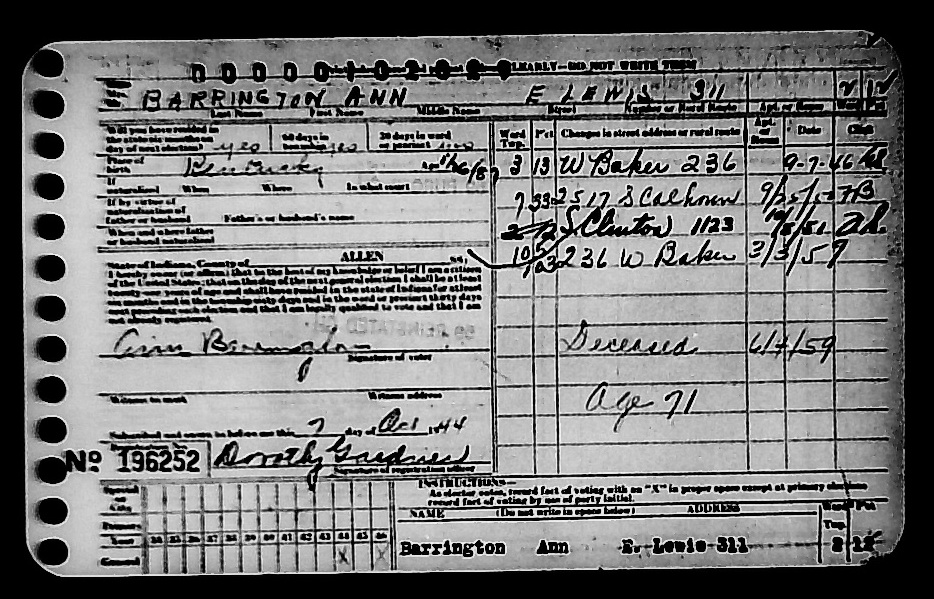 CLEARLY—DO NOT WRITE THEM
BARRINGTON ANN E LEWIS 311 2 12
Last Name First Name Middle Name Street Number or Rural Route Apt. or Room Ward Pct
Will you have resided in 60 days in 30 days in ward
township or precinct
day of next election? yes yes yes
Place of birth Kentucky
If naturalized When Where In what court
If by virtue of
naturalization of
father or husband Father's or husband's name
When and where father
or husband naturalized
State of Indiana, County of ALLEN ss:
I hereby swear (or affirm) that to the best of my knowledge or belief I am a citizen
of the United States; that on the day of the next general election I shall be at least
twenty-one years of age and shall have resided in the state of Indiana for at least
six months and in the township sixty days and in the ward or precinct thirty days
next preceding such election and that I am legally qualified to vote and that I am
not already registered.
Ann Barrington
Signature of voter
Witness to mark Witness address
Subscribed and sworn to before me this 7 day of Oct 1944
No 196252 Dorothy Gardner
Signature of registration officer
Ward Twp. Pct Changes in street address or rural route Apt. or Room Date Clerk
3 13 W Baker 236 9-7-46
2517 S Calhoun
S Clinton 1123
236 W Baker 3/3/59
Deceased 6/4/59
Age 71
INSTRUCTIONS—
As elector votes, record fact of voting with an "X" in proper space except at primary elections
record fact of voting by use of party initial.
NAME (Do not write in space below) ADDRESS Ward Twp. Pct
Barrington Ann E. Lewis 311 2 12
Special or City
Primary
Year 34 35 36 37 38 39 40 41 42 43 44 45 46
General X X